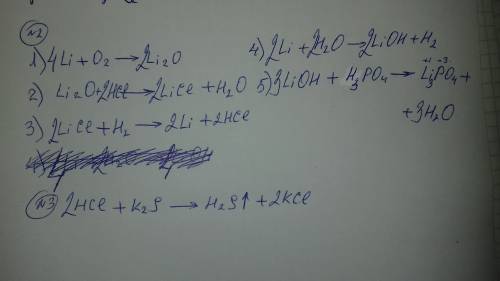 №2
1) 4Li + O₂ → 2Li₂O
2) Li₂O + 2HCl → 2LiCl + H₂O
3) 2LiCl + H₂ → 2Li + 2HCl
4) 2Li + 2H₂O → 2LiOH + H₂
5) 3LiOH + H₃PO₄ → Li₃PO₄ +
+1 -3
+ 3H₂O
№3 2HCl + K₂S → H₂S↑ + 2KCl